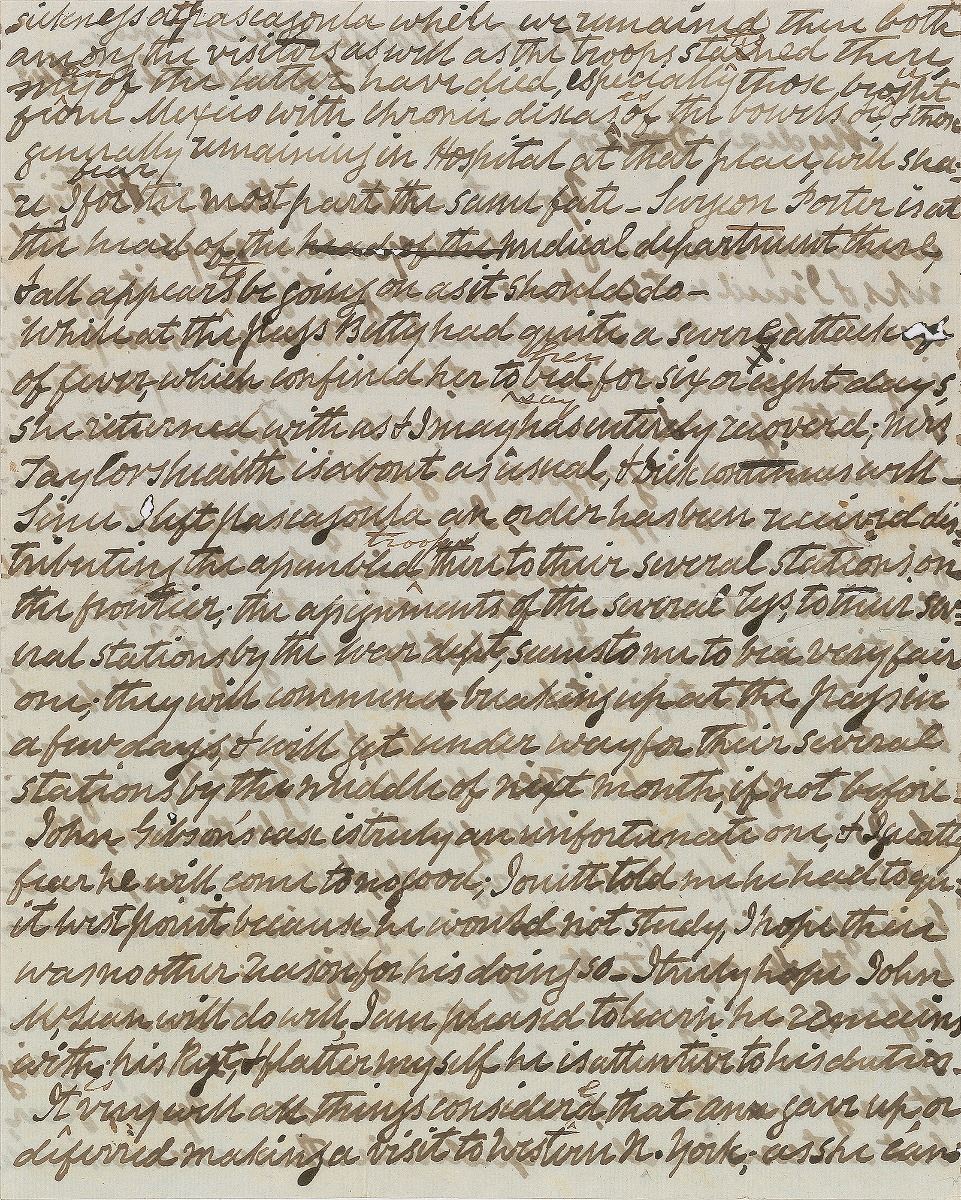 sickness at pascagoula while we remained there both
among the visitors as will as the troops stationed there
many of the latter have died, especially those brought
from Mexico with chronic diseases of the bowels &c, & those
generally remaining in Hospital at that place, will sha-
re I fear, for the most part the same fate - Surgeon Porter is at
the head of the head of the medical department there,
& all appears to be going on as it should do -
While at the pass Betty had quite a severe attack of
of fever, which confined her to her bed for six or eight days,
she returned with us & I may say has entirely recoverd; Mrs
Taylors health is about as usual, & Dick continues well -
Since I left pascagoula an order has been received dis-
tributing the assembled troops there to their several stations on
the frontier; the assignments of the several Regts, to their sev-
eral stations by the war dept, seems to me to be a very fair
one; they will commence breaking up at the pass in
a few days, & will get under way for their several
stations by the middle of next month, if not before -
John Gibson's case is truly an unfortunate one, & I greatly
fear he will come to no good; Jouitt told me he had to qu-
it West point because he would not study, I hope there
was no other reason for his doing so - I truly hope John
McLean will do will, I am pleased to learn he remains
with his Regt, & flatter myself he is attentive to his duties -
It is very will all things considered that ann gave up, or
deferred making a visit to Western N. York; as she can